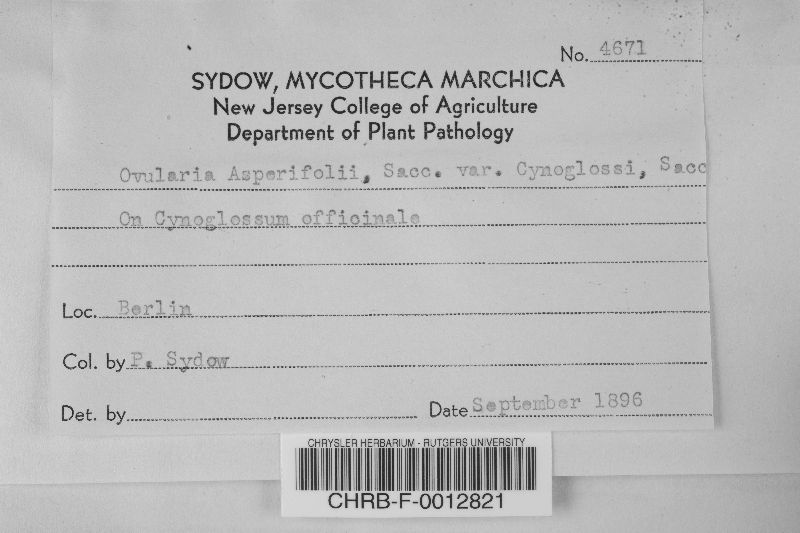 No. 4671
SYDOW, MYCOTHECA MARCHICA
New Jersey College of Agriculture
Department of Plant Pathology
Ovularia Asperifolii, Sacc. var. Cynoglossi, Sacc
On Cynoglossum officinale
Loc. Berlin
Col. by P. Sydow
Det. by
Date September 1896
CHRYSLER HERBARIUM - RUTGERS UNIVERSITY
CHRB-F-0012821